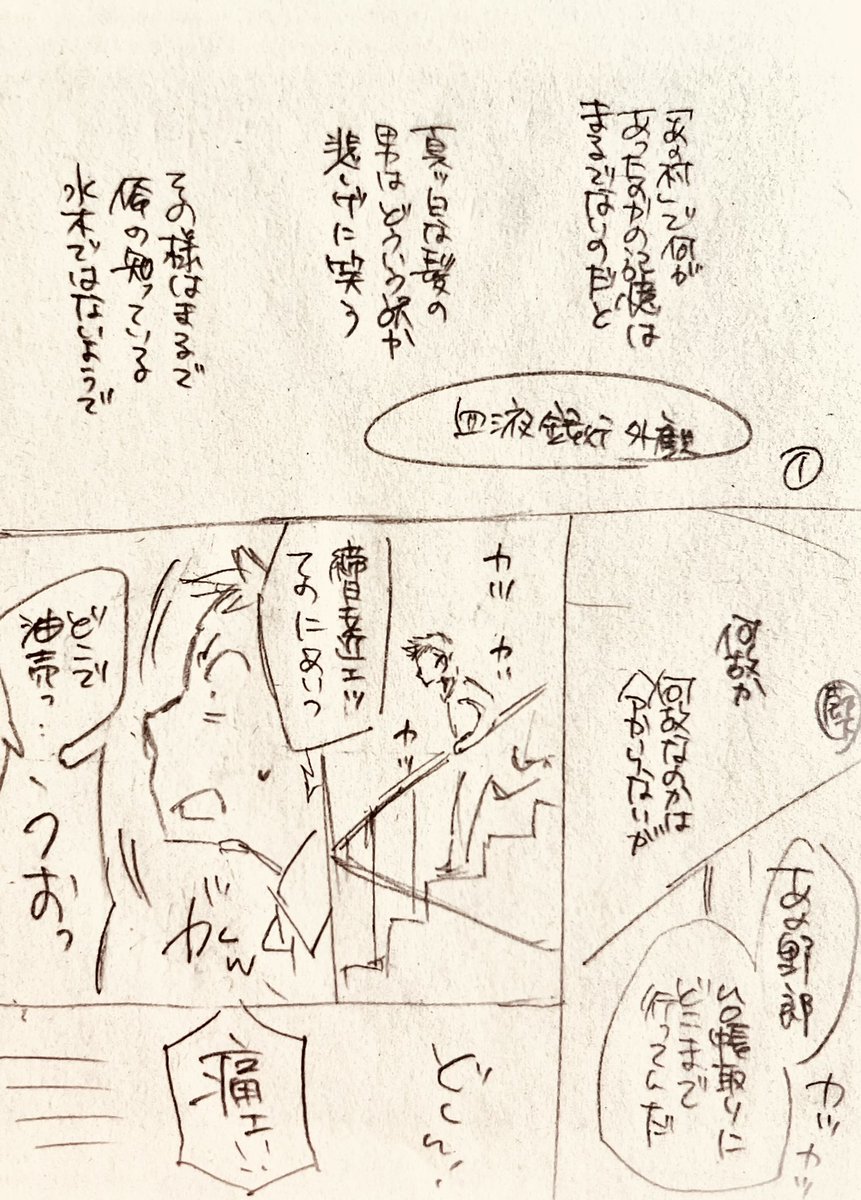 「あの村」で何が
あったのかの記憶は
まるでないのだと
真ッ白な髪の
男はどういう訳か
悲しげに笑う
その様はまるで
俺の知っている
水木ではないようで
血液銀行 外観
①
何故か
何故なのかは
分からないが
あの野郎
台帳取りに
どこまで
行ってんだ
カツ カツ
カツ カツ
カツ
締日も近エッ
てのにあいつ
どこで
油売っ…
ガクン
うおっ
どしん!
痛エ!!